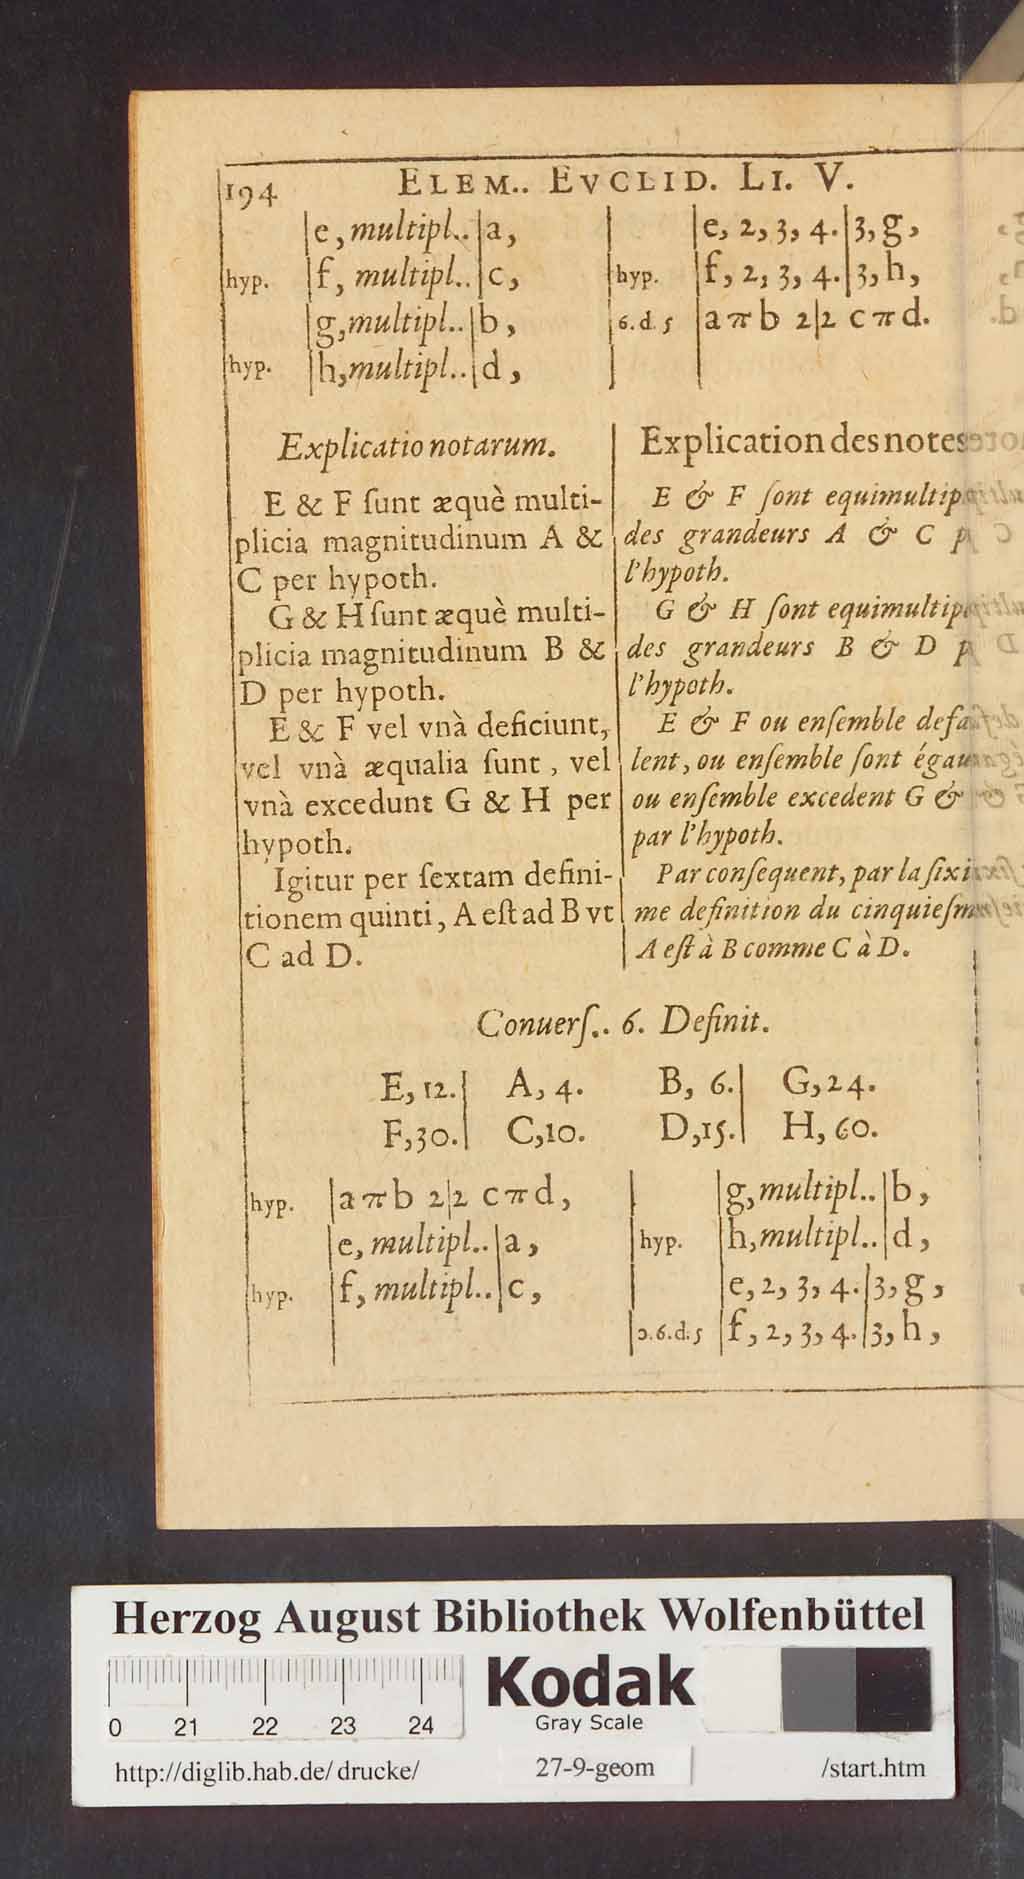 194 ELEM.. EVCLID. LI. V.
|e, multipl..|a,
hyp. |f, multipl..|c,
|g, multipl..|b,
hyp. |h, multipl..|d,
|e, 2, 3, 4.|3, g,
hyp. |f, 2, 3, 4.|3, h,
6.d.5 |a π b 2|2 c π d.
Explicatio notarum.
E & F ſunt æquè multi-
plicia magnitudinum A &
C per hypoth.
G & H ſunt æquè multi-
plicia magnitudinum B &
D per hypoth.
E & F vel vnà deficiunt,
vel vnà æqualia ſunt, vel
vnà excedunt G & H per
hypoth.
Igitur per ſextam defini-
tionem quinti, A eſt ad B vt
C ad D.
Explication des notes
E & F ſont equimultip
des grandeurs A & C p
l'hypoth.
G & H ſont equimultip
des grandeurs B & D p
l'hypoth.
E & F ou enſemble defa
lent, ou enſemble ſont égau
ou enſemble excedent G &
par l'hypoth.
Par conſequent, par la ſixi
me definition du cinquieſm
A eſt à B comme C à D.
Conuerſ.. 6. Definit.
E, 12.| A, 4. B, 6.| G, 24.
F, 30.| C, 10. D, 15.| H, 60.
hyp. |a π b 2|2 c π d,
|e, multipl..|a,
hyp. |f, multipl..|c,
|g, multipl..|b,
hyp. |h, multipl..|d,
|e, 2, 3, 4.|3, g,
ɔ.6.d.5 |f, 2, 3, 4.|3, h,
Herzog August Bibliothek Wolfenbüttel
0 21 22 23 24
Kodak
Gray Scale
http://diglib.hab.de/drucke/ 27-9-geom /start.htm